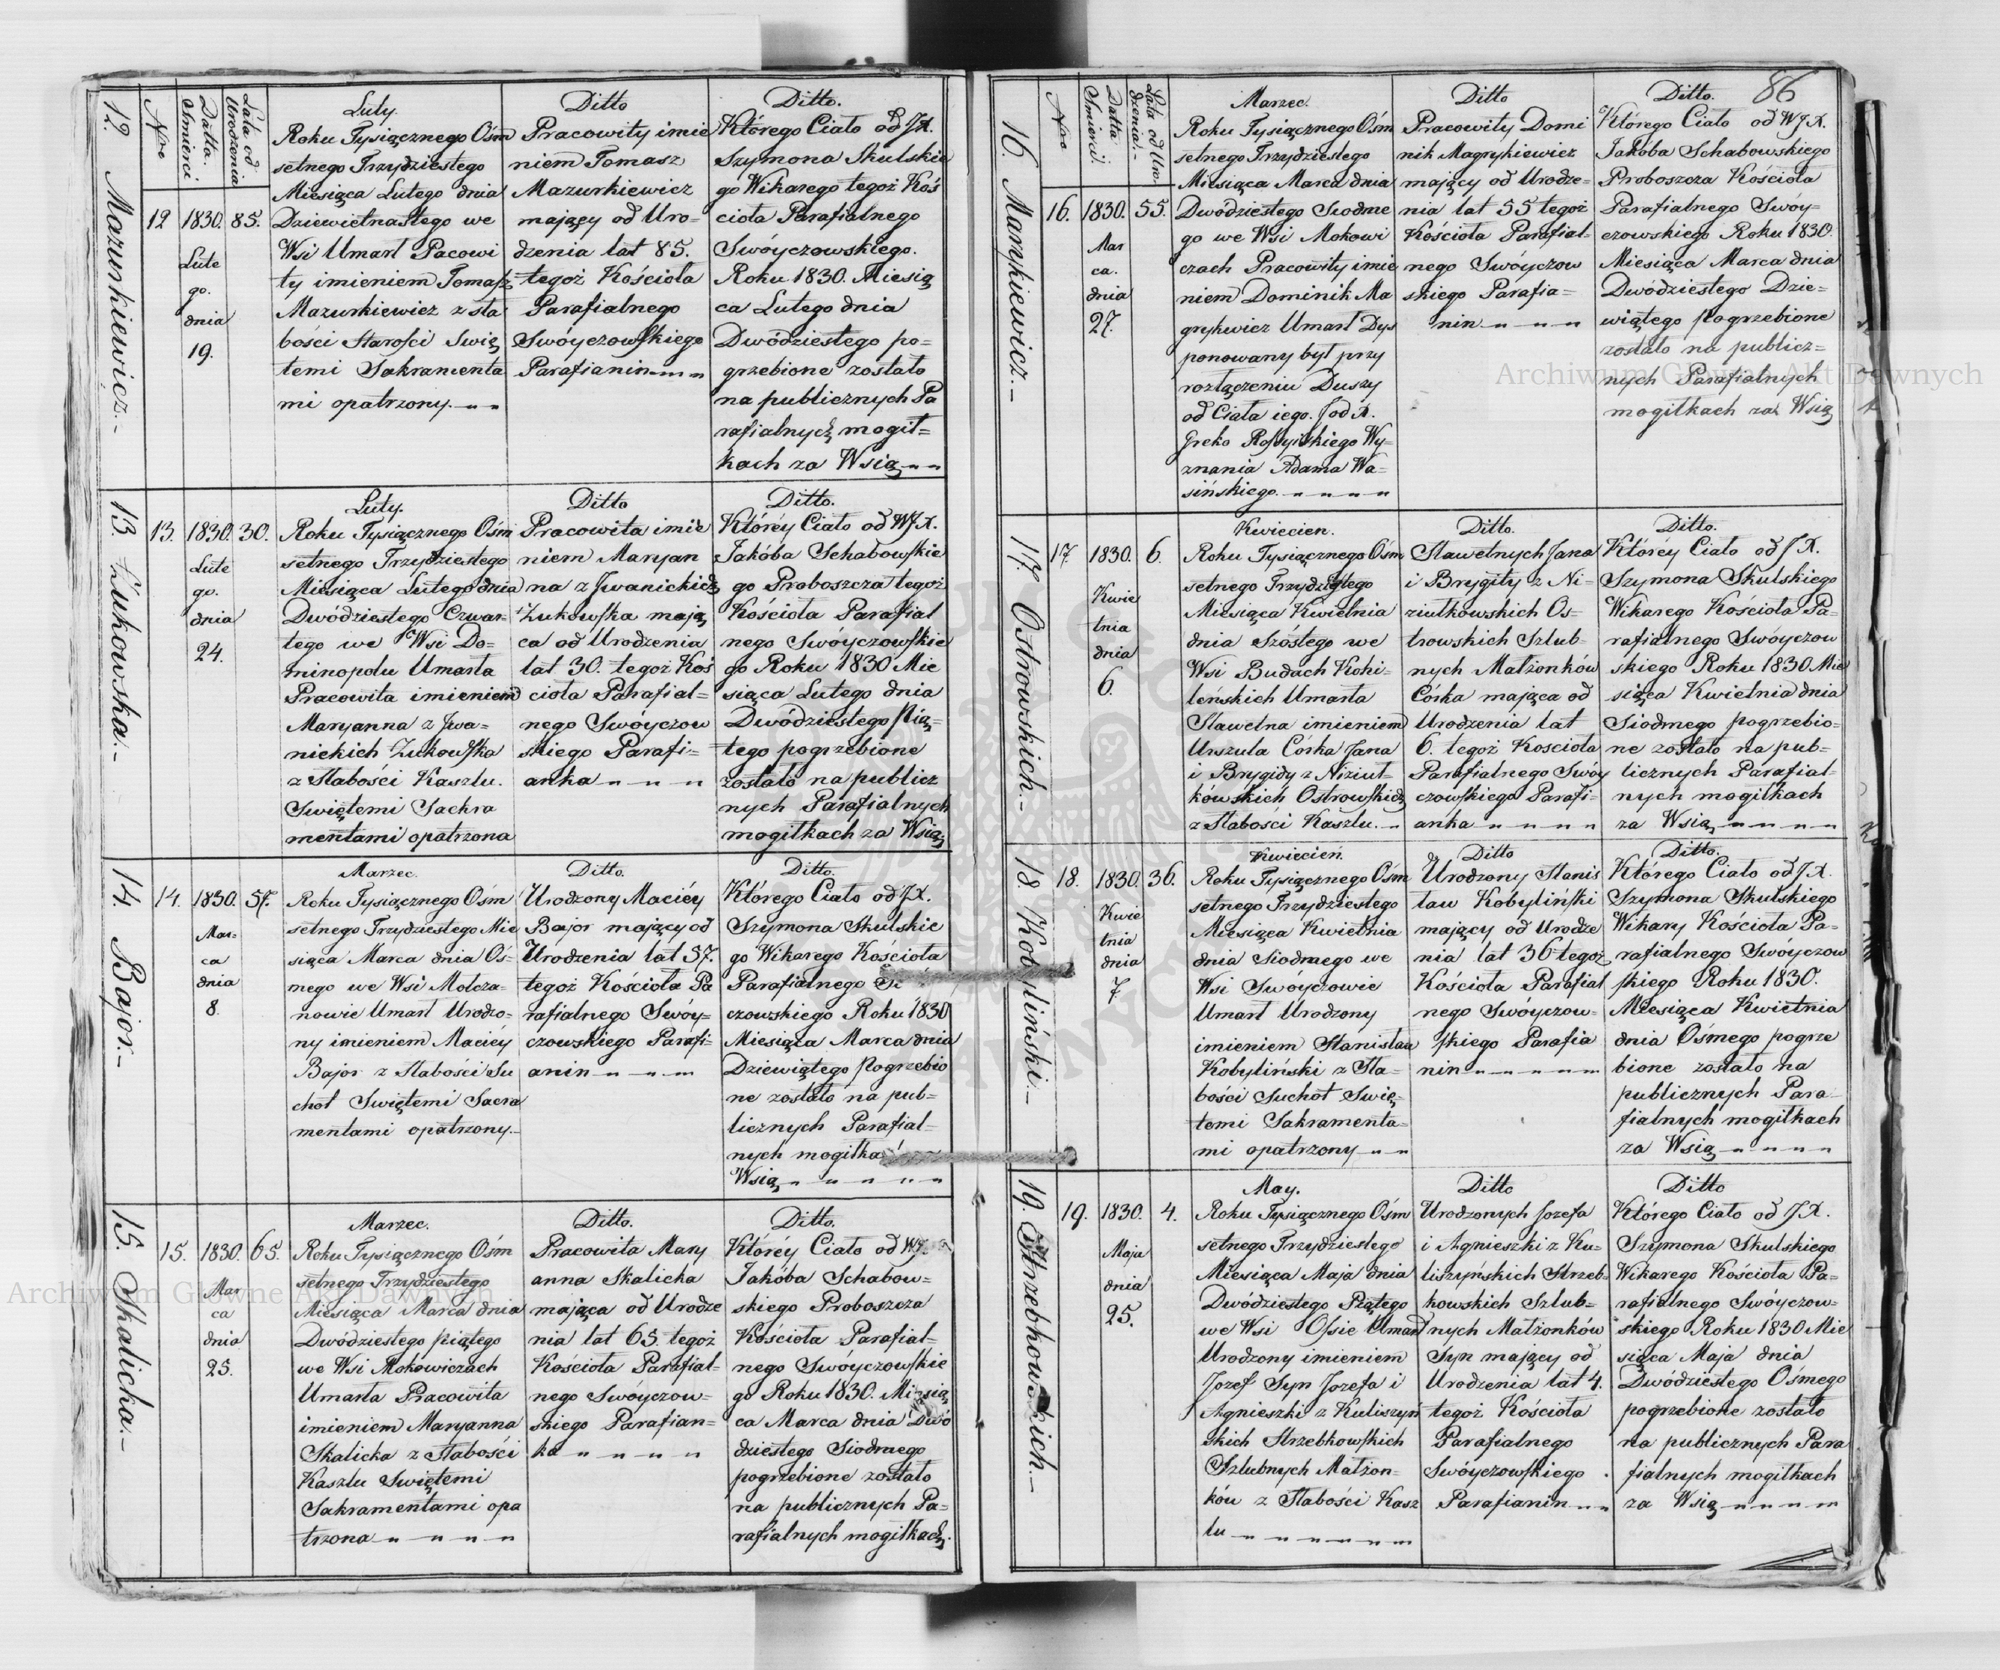 12. Mazurkiewicz.-
Nro
Datta. Śmierci
Lata od Urodzenia
12
1830.
Lute
go.
dnia
19.
85.
Luty.
Roku Tysiącznego Ośm
setnego Trzydziestego
Miesiąca Lutego dnia
Dziewietnastego we
Wsi Umarł Pacowi
ty imieniem Tomasz
Mazurkiewicz z sła
bości Starości Swię
temi Sakramenta
mi opatrzony.
Ditto
Pracowity imie
niem Tomasz
Mazurkiewicz
mający od Uro-
dzenia lat 85.
tegoż Kościoła
Parafialnego
Swóyczowskiego
Parafianin
Ditto.
Którego Ciało od JX.
Szymona Skulskie
go Wikarego tegoż Koś
cioła Parafialnego
Swóyczowskiego.
Roku 1830. Miesią
ca Lutego dnia
Dwódziestego po=
grzebione zostało
na publicznych Pa
rafialnych mogił=
kach za Wsią
13. Żukowska.-
13.
1830.
Lute
go.
dnia
24.
30.
Luty.
Roku Tysiącznego Ośm
setnego Trzydziestego
Miesiąca Lutego dnia
Dwódziestego Czwar-
tego we Wsi Do-
minopolu Umarła
Pracowita imieniem
Maryanna z Jwa-
nickich Żukowska
z Słabości Kaszlu.
Swiętemi Sackra
mentami opatrzona
Ditto
Pracowita imie
niem Maryan
na z Jwanickich
Żukowska mają
ca od Urodzenia
lat 30. tegoż Koś
cioła Parafial-
nego Swóyczow
skiego Parafi-
anka
Ditto.
Któréy Ciało od WJX.
Jakóba Schabowskie
go Proboszcza tegoż
Kościoła Parafial
nego Swóyczowskie
go Roku 1830 Mie
siąca Lutego dnia
Dwódziestego Pią-
tego pogrzebione
zostało na publicz
nych Parafialnych
mogiłkach za Wsią
14. Bajor.-
14.
1830.
Mar=
ca
dnia
8.
57.
Marzec.
Roku Tysiącznego Ośm
setnego Trzydziestego Mie
siąca Marca dnia Os-
mego we Wsi Mołcza-
nowie Umarł Urodzo-
ny imieniem Maciéy
Bajor z Słabości Su
chot Swiętemi Sacra
mentami opatrzony.
Ditto.
Urodzony Maciéy
Bajor mający od
Urodzenia lat 57.
tegoż Kościoła Pa
rafialnego Swóy-
czowskiego Parafi-
anin
Ditto.
Którego Ciało od JX.
Szymona Skulskie
go Wikarego Kościoła
Parafialnego
czowskiego Roku 1830
Miesiąca Marca dnia
Dziewiątego Pogrzebio
ne zostało na pub-
licznych Parafial-
nych mogiłka
Wsią
15. Skalicka.-
15.
1830.
Mar
ca
dnia
25.
65.
Marzec.
Roku Tysiącznego Ośm
setnego Trzydziestego
Miesiąca Marca dnia
Dwódziestego piątego
we Wsi Mokowiczach
Umarła Pracowita
imieniem Maryanna
Skalicka z Słabości
Kaszlu Swiętemi
Sakramentami opa
trzona
Ditto.
Pracowita Mary
anna Skalicka
mająca od Urodze
nia lat 65. tegoż
Kościoła Parafial-
nego Swoyczow-
skiego Parafian-
ka
Ditto.
Któréy Ciało od WJ
Jakóba Schabow=
skiego Proboszcza
Kościoła Parafial-
nego Swóyczowskie
go Roku 1830. Miesią
ca Marca dnia Dwó
dziestego Siodmego
pogrzebione zostało
na publicznych Pa-
rafialnych mogiłkach.
86
16. Magrykiewicz.-
Nro
Datta Śmierci
Lata od Uro dzenia.-
16.
1830.
Mar
ca.
dnia
27.
55.
Marzec.
Roku Tysiącznego Ośm
setnego Trzydziestego
Miesiąca Marca dnia
Dwódziestego Siodme
go we Wsi Mokowi
czach Pracowity imie
niem Dominik Ma
grykewicz Umarł Dys
ponowany był przy
rozłączeniu Duszy
od Ciała iego. J od X.
Greko Rossyiskiego Wy-
znania Adama Wa-
sińskiego
Ditto
Pracowity Domi
nik Magrykiewicz
mający od Urodze-
nia lat 55 tegoż
Kościoła Parafial-
nego Swóyczow
skiego Parafia-
nin
Ditto.
Którego Ciało od WJX.
Jakóba Schabowskiego
Proboszcza Kościoła
Parafialnego Swoy-
czowskiego Roku 1830.
Miesiąca Marca dnia
Dwódziestego Dzie-
wiątego pogrzebione
zostało na publicz=
nych Parafialnych
mogiłkach za Wsią
17. Ostrowskich.-
17
1830.
Kwie
tnia
dnia
6.
6.
Kwiecien.
Roku Tysiącznego Ośm
setnego Trzydziestego
Miesiąca Kwietnia
dnia Szóstego we
Wsi Budach Kohi-
leńskich Umarła
Sławetna imieniem
Urszula Córka Jana
i Brygidy z Niziuł-
kówskich Ostrowskich
z Słabości Kaszlu.
Ditto.
Sławetnych Jana
i Brygity z Ni-
ziułkowskich Os-
trowskich Szlub-
nych Małżonków
Córka mająca od
Urodzenia lat
6. tegoż Kosciola
Parafialnego Swóy
czowskiego Parafi-
anka
Ditto.
Któréy Ciało od JX.
Szymona Skulskiego
Wikarego Kościoła Pa-
rafialnego Swóyczow
skiego Roku 1830 Mie
siąca Kwietnia dnia
Siodmego pogrzebio-
ne zostało na pub-
licznych Parafial-
nych mogiłkach
za Wsią
18. Kobyliński.-
18.
1830.
Kwie
tnia
dnia
7
36.
Kwiecień.
Roku Tysiącznego Ośm
setnego Trzydziestego
Miesiąca Kwietnia
dnia Siodmego we
Wsi Swóyczowie
Umarł Urodzony
imieniem Stanisław
Kobyliński z Sła-
bości Suchot Swię-
temi Sakramenta-
mi opatrzony
Ditto
Urodzony Stanis
ław Kobyliński
mający od Urodze
nia lat 36 tegoż
Kościoła Parafial
nego Swóyczow-
skiego Parafia
nin
Ditto.
Którego Ciało od JX.
Szymona Skulskiego
Wikary Kościoła Pa-
rafialnego Swóyczow
skiego Roku 1830.
Miesiąca Kwietnia
dnia Ósmego pogrze
bione zostało na
publicznych Para
fialnych mogiłkach
za Wsią
19. Strzebkowskich.-
19.
1830.
Maja
dnia
25.
4.
May.
Roku Tysiącznego Ośm
setnego Trzydziestego
Miesiąca Maja dnia
Dwódziestego Piątego
we Wsi Ossie Umarł
Urodzony imieniem
Jozef Syn Jozefa i
Agnieszki z Kuliszyń
skich Strzebkowskich
Szlubnych Małżon-
ków z Słabości Kasz
lu
Ditto
Urodzonych Jozefa
i Agnieszki z Ku-
liszyńskich Strzeb-
kowskich Szlub-
nych Małżonków
Syn mający od
Urodzenia lat 4.
tegoż Kościoła
Parafialnego
Swóyczowskiego
Parafianin
Ditto
Którego Ciało od JX.
Szymona Skulskiego
Wikarego Kościoła Pa-
rafialnego Swóyczow-
skiego Roku 1830 Mie
siąca Maja dnia
Dwódziestego Ósmego
pogrzebione zostało
na publicznych Para
fialnych mogiłkach
za Wsią
Archiwum Główne Akt Dawnych
Archiwum Główne Akt Dawnych